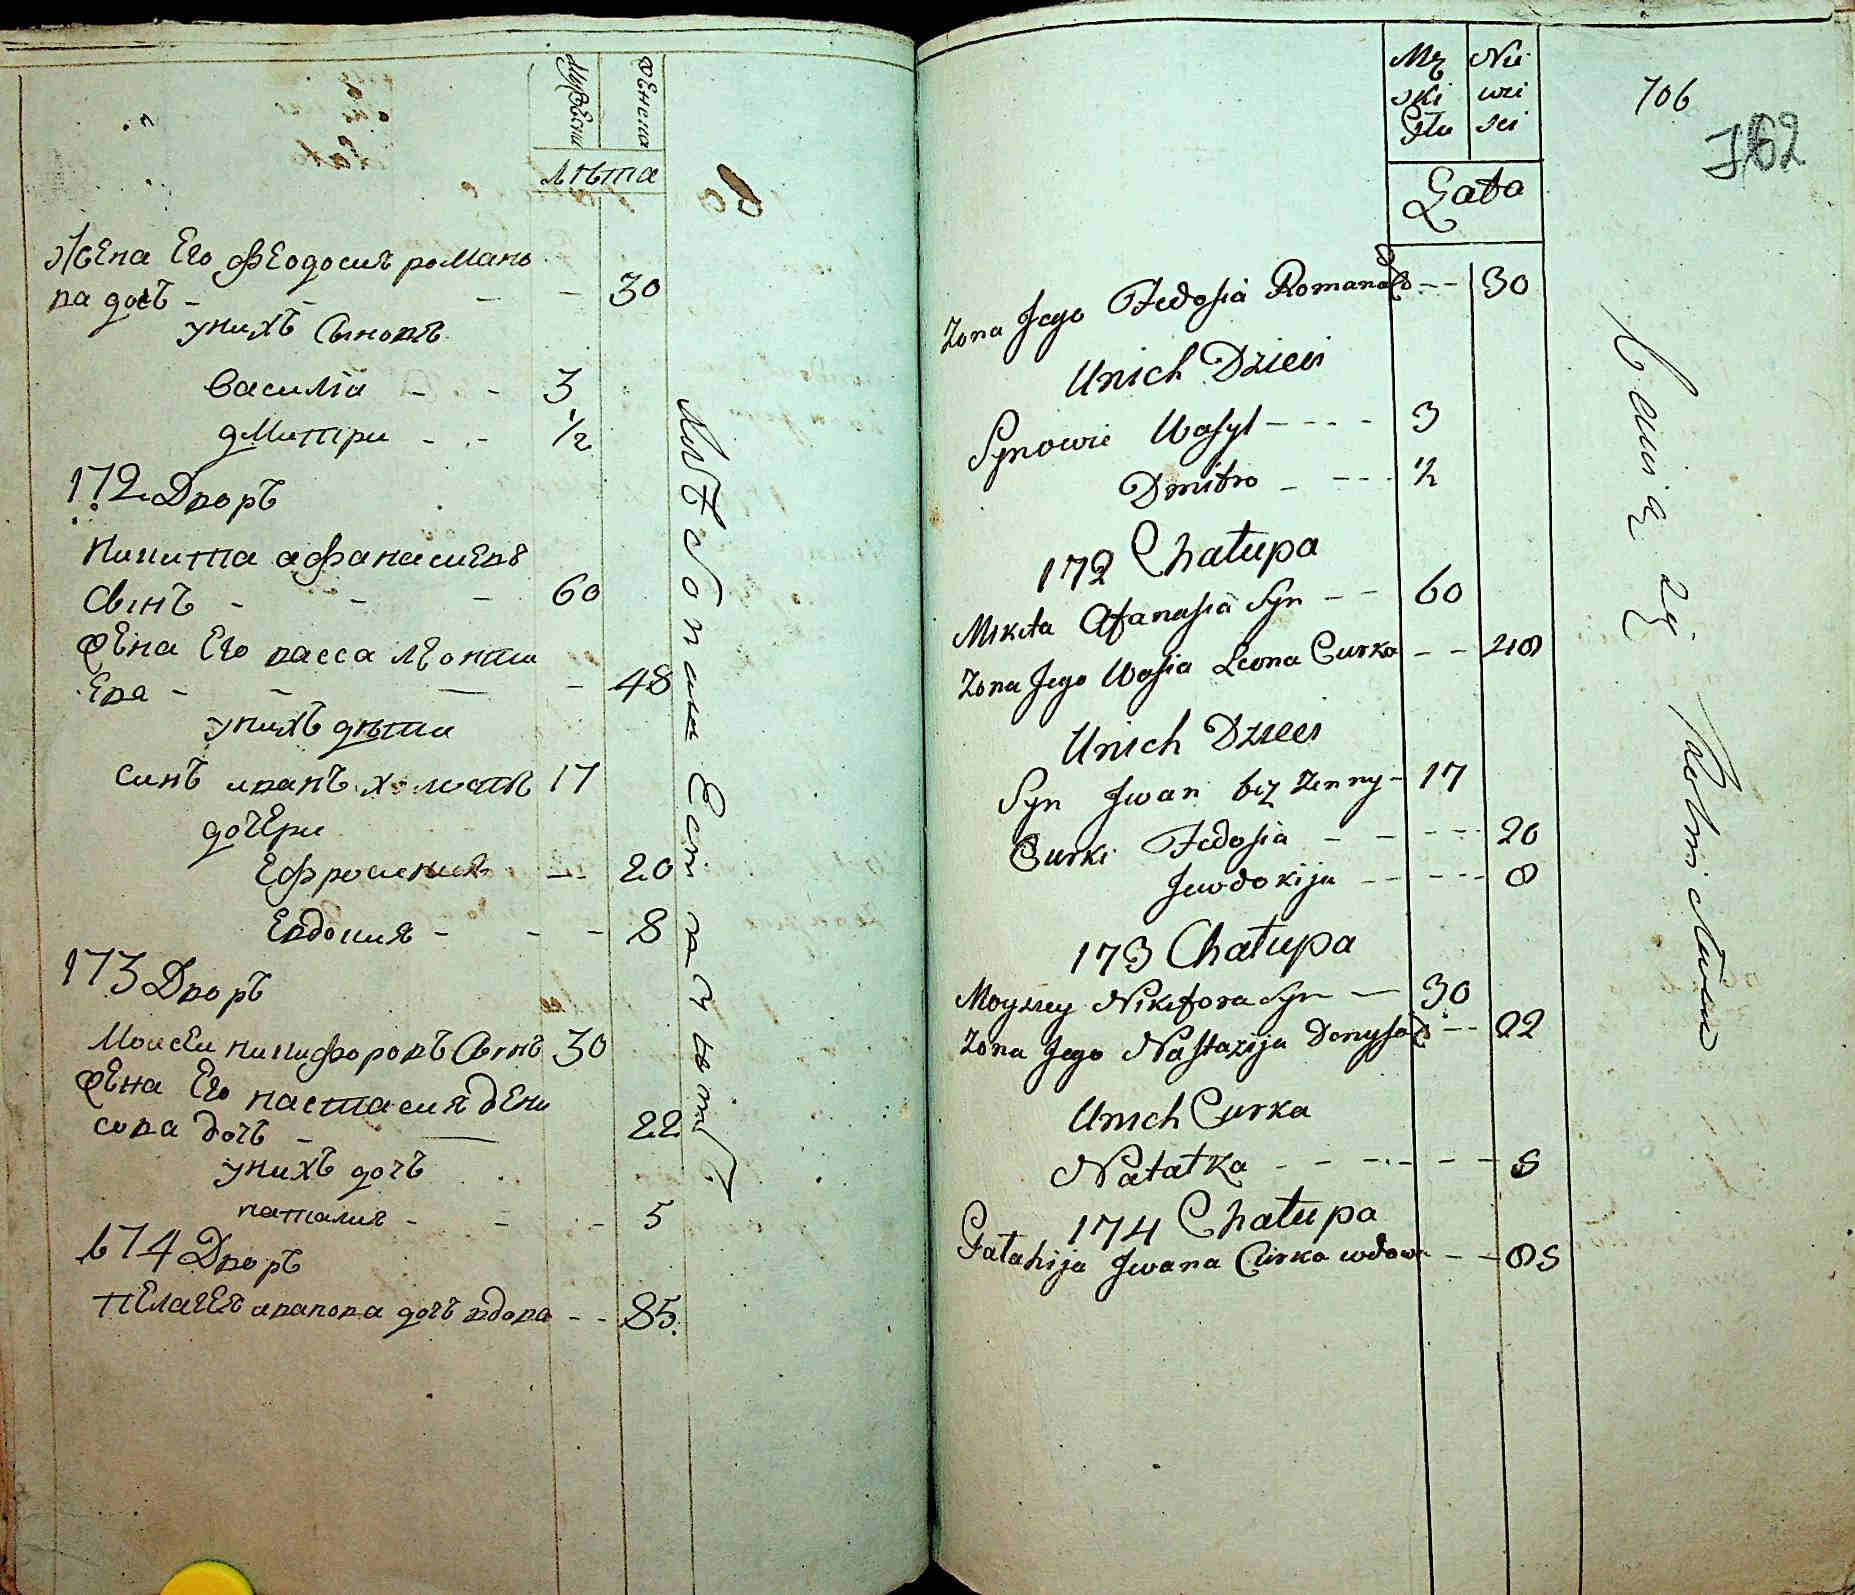 мужеска
женска
лѣта
Жена Его феодосия романо
ва дочь - - - - 30
унихъ Сыновя
василіи - - 3
дмитри - - 1/2
172 Дворъ
никита афанасиевъ
Сынъ - - - 60
жена Его васса леонти
Ева - - - - 48
унихъ дѣти
синъ иванъ холостъ 17
дочери
Ефросиния - - 20
Евдокия - - - 8
173 Дворъ
Моисеи никифоровъ Сынъ 30
жена Его настасия дени
сова дочь - - 22
унихъ дочь
наталия - - - 5
174 Дворъ
пелагея иванова дочь вдова - - 85
Mę Nie
ski wie
Płu sci
706
762
Lata
Zona Jego Fedosia Romana C - - 30
Unich Dzieci
Synowie Wasyl - - - - 3
Dmitro - - - - 1/2
172 Chałupa
Mikita Afanasia Syn - - 60
Zona Jego Wasia Leona Curka - - 48
Unich Dzieci
Syn Jwan bez Zenny - 17
Curki Fedosia - - - - - 20
Jewdokija - - - - - 8
173 Chałupa
Moyzey Nikifora Syn - 30
Zona Jego Nastazija Denysa C - - 22
Unich Curka
Natałka - - - - - - - 5
174 Chałupa
Pałahija Jwana Curka wdowa - - 85